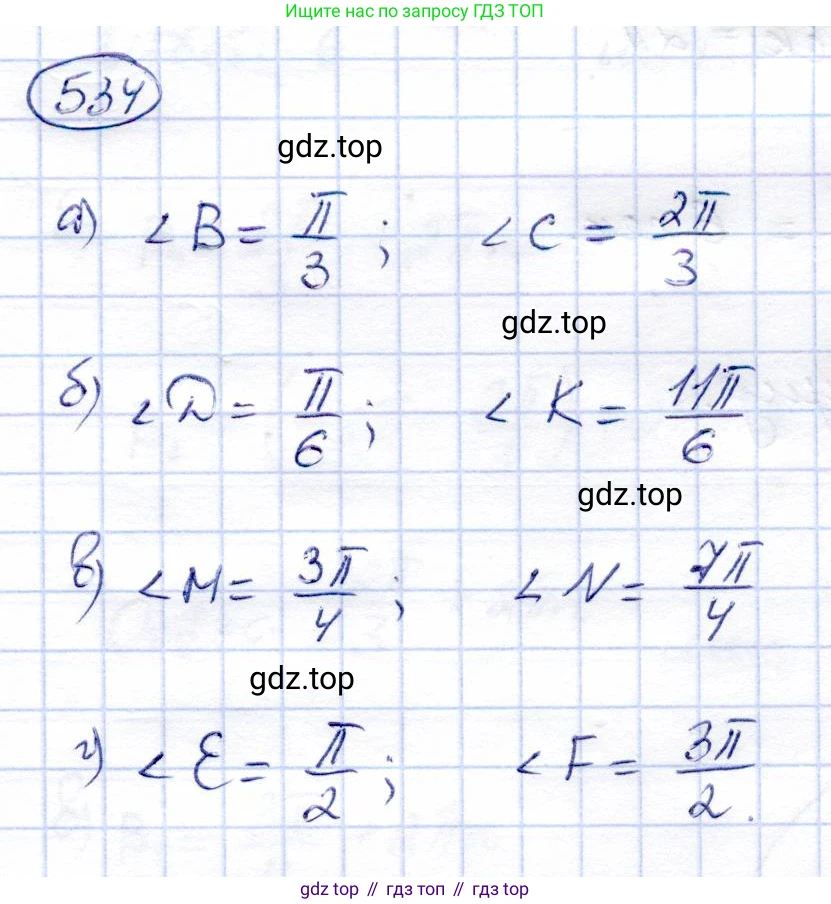 Ищите нас по запросу ГДЗ ТОП
534
gdz.top
а) ∠B = π/3 ; ∠C = 2π/3
gdz.top
б) ∠D = π/6 ; ∠K = 11π/6
gdz.top
в) ∠M = 3π/4 ; ∠N = 7π/4
gdz.top
г) ∠E = π/2 ; ∠F = 3π/2.
gdz top // гдз топ // гдз top